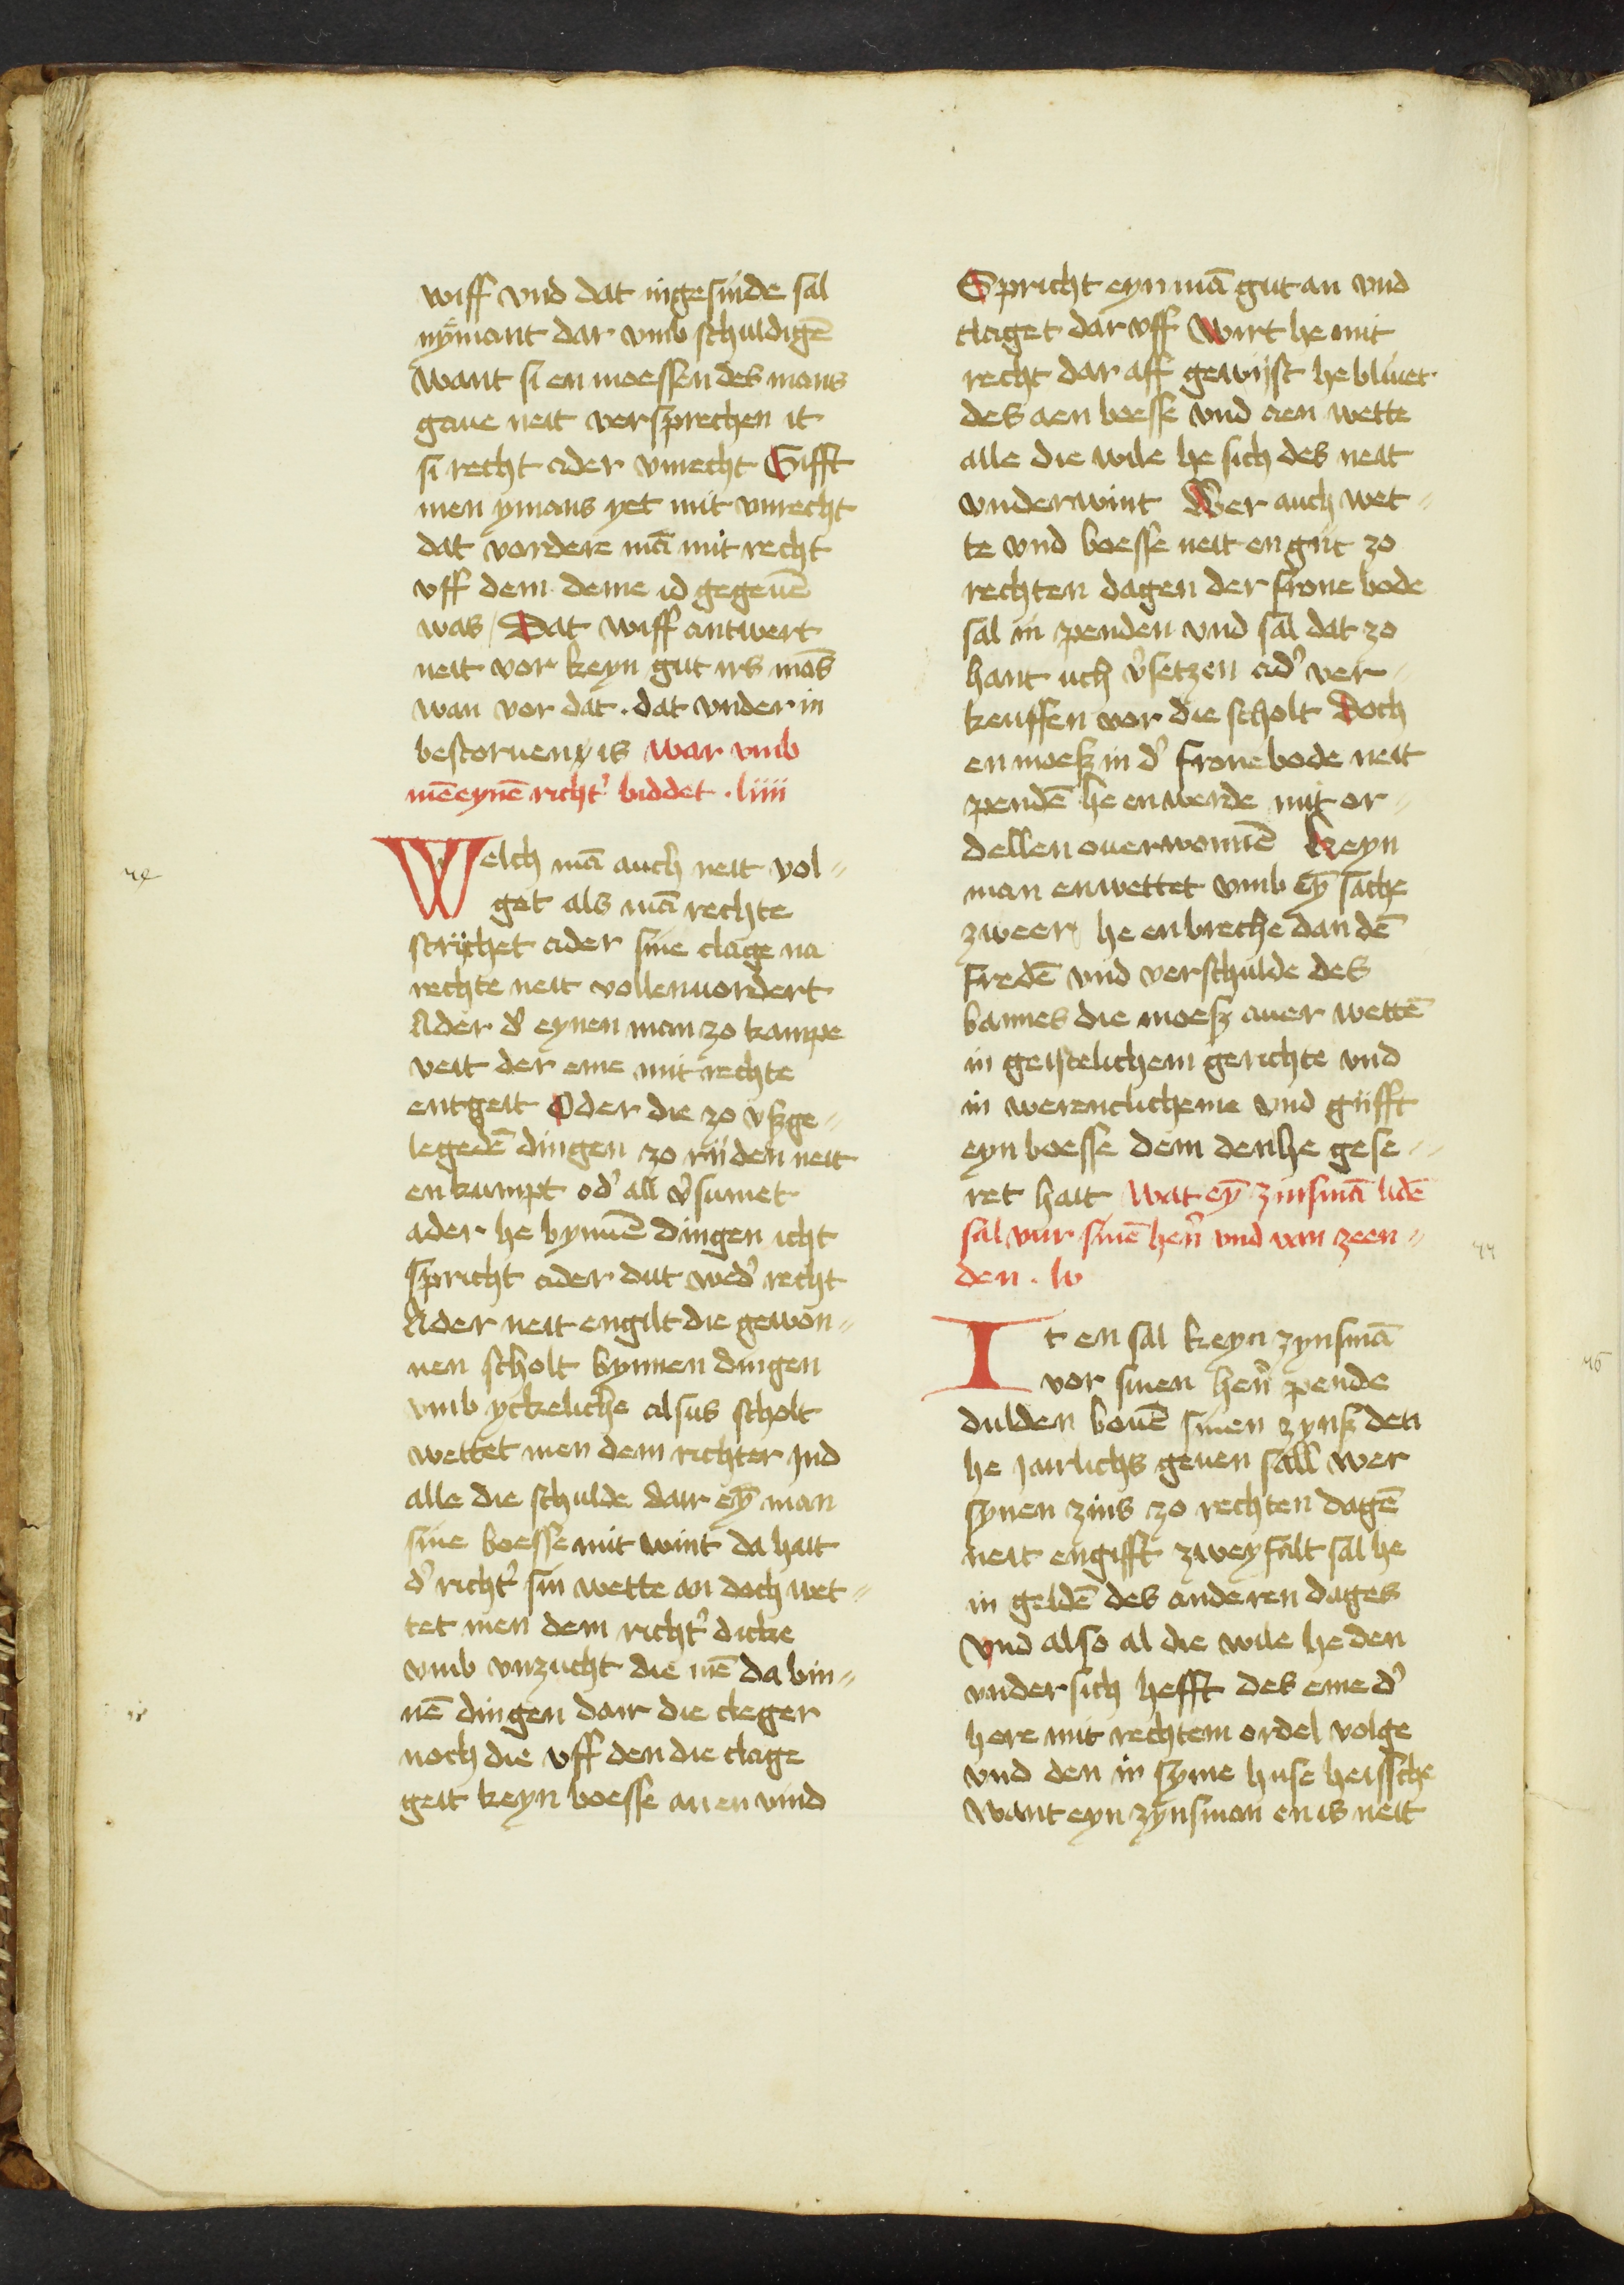 wiff vnd dat ingesinde sal
nÿmant dar vmb schuldigē
want si en moessen des mans
gaue neit versprechen it
si recht ader vnrecht Gifft
men ymans yet mit vnrecht
dat vordere mā mit recht
vff dem deme id gegeuē
was / Dat wiff antwert
neit vor keyn gut irs mās
wan vor dat . dat vnder in
bestoruen is war vmb
mē eynē richt' biddet . liiii
Welch mā auch neit vol-
get als mā rechte
strÿchet ader sine clage na
rechte neit vollenuordert
Ader d' eynen man zo kampe
veit der eme mit rechte
entgeit Oder die zo vßge-
legedē dingen zo rijden neit
en kumpt od' all v'sumet
ader he bynnē dingen icht
spricht ader dut wed' recht
Ader neit engilt die gewon-
nen scholt bynnen dingen
vmb yckeliche alsus scholt
wettet men dem richter Jnd
alle die schulde dair eȳ man
sine boesse mit wint da hait
d' richt' sin wette an doch wet-
tet men dem richt' dicke
vmb vnzucht die mē da bin-
nē dingen dair die cleger
noch die vff den die clage
geit keyn boesse an en vind
Spricht eyn mā gut an vnd
claget dar vff Wirt he mit
recht dar aff gewijst he bliuet
des aen boesse vnd aen wette
alle die wile he sich des neit
vnderwint Wer auch wet-
te vnd boesse neit en gijt zo
rechten dagen der frone bode
sal in penden vnd sal dat zo
hant uch v'setzen ad' ver-
keuffen vor die scholt Doch
en moeß in d' fronebode neit
pendē he en werde mit or-
dellen ouerwonnē Keyn
man enwettet vmb eȳ sache
zweer he enbreche dan dē
fredē vnd verschulde des
bannes die moeß auer wettē
in geistelichem gerichte vnd
in werentlicheme vnd gijfft
eyn boesse dem den he gese-
ret hait Wat eȳ zinsmā lidē
sal vur sinē hen' vnd van zeen-
den . lv
It en sal keyn zynsmā
vor sinen hen' pende
dulden bouē sinen zynß den
he Jairlichs geuen sall wer
synen zins zo rechten dagē
neit engifft zweyfalt sal he
in geldē des anderen dages
Vnd also al die wile he den
vnder sich hefft des eme d'
here mit rechtem ordel volge
vnd den in syme huse heissche
Want eyn zynsman en is neit